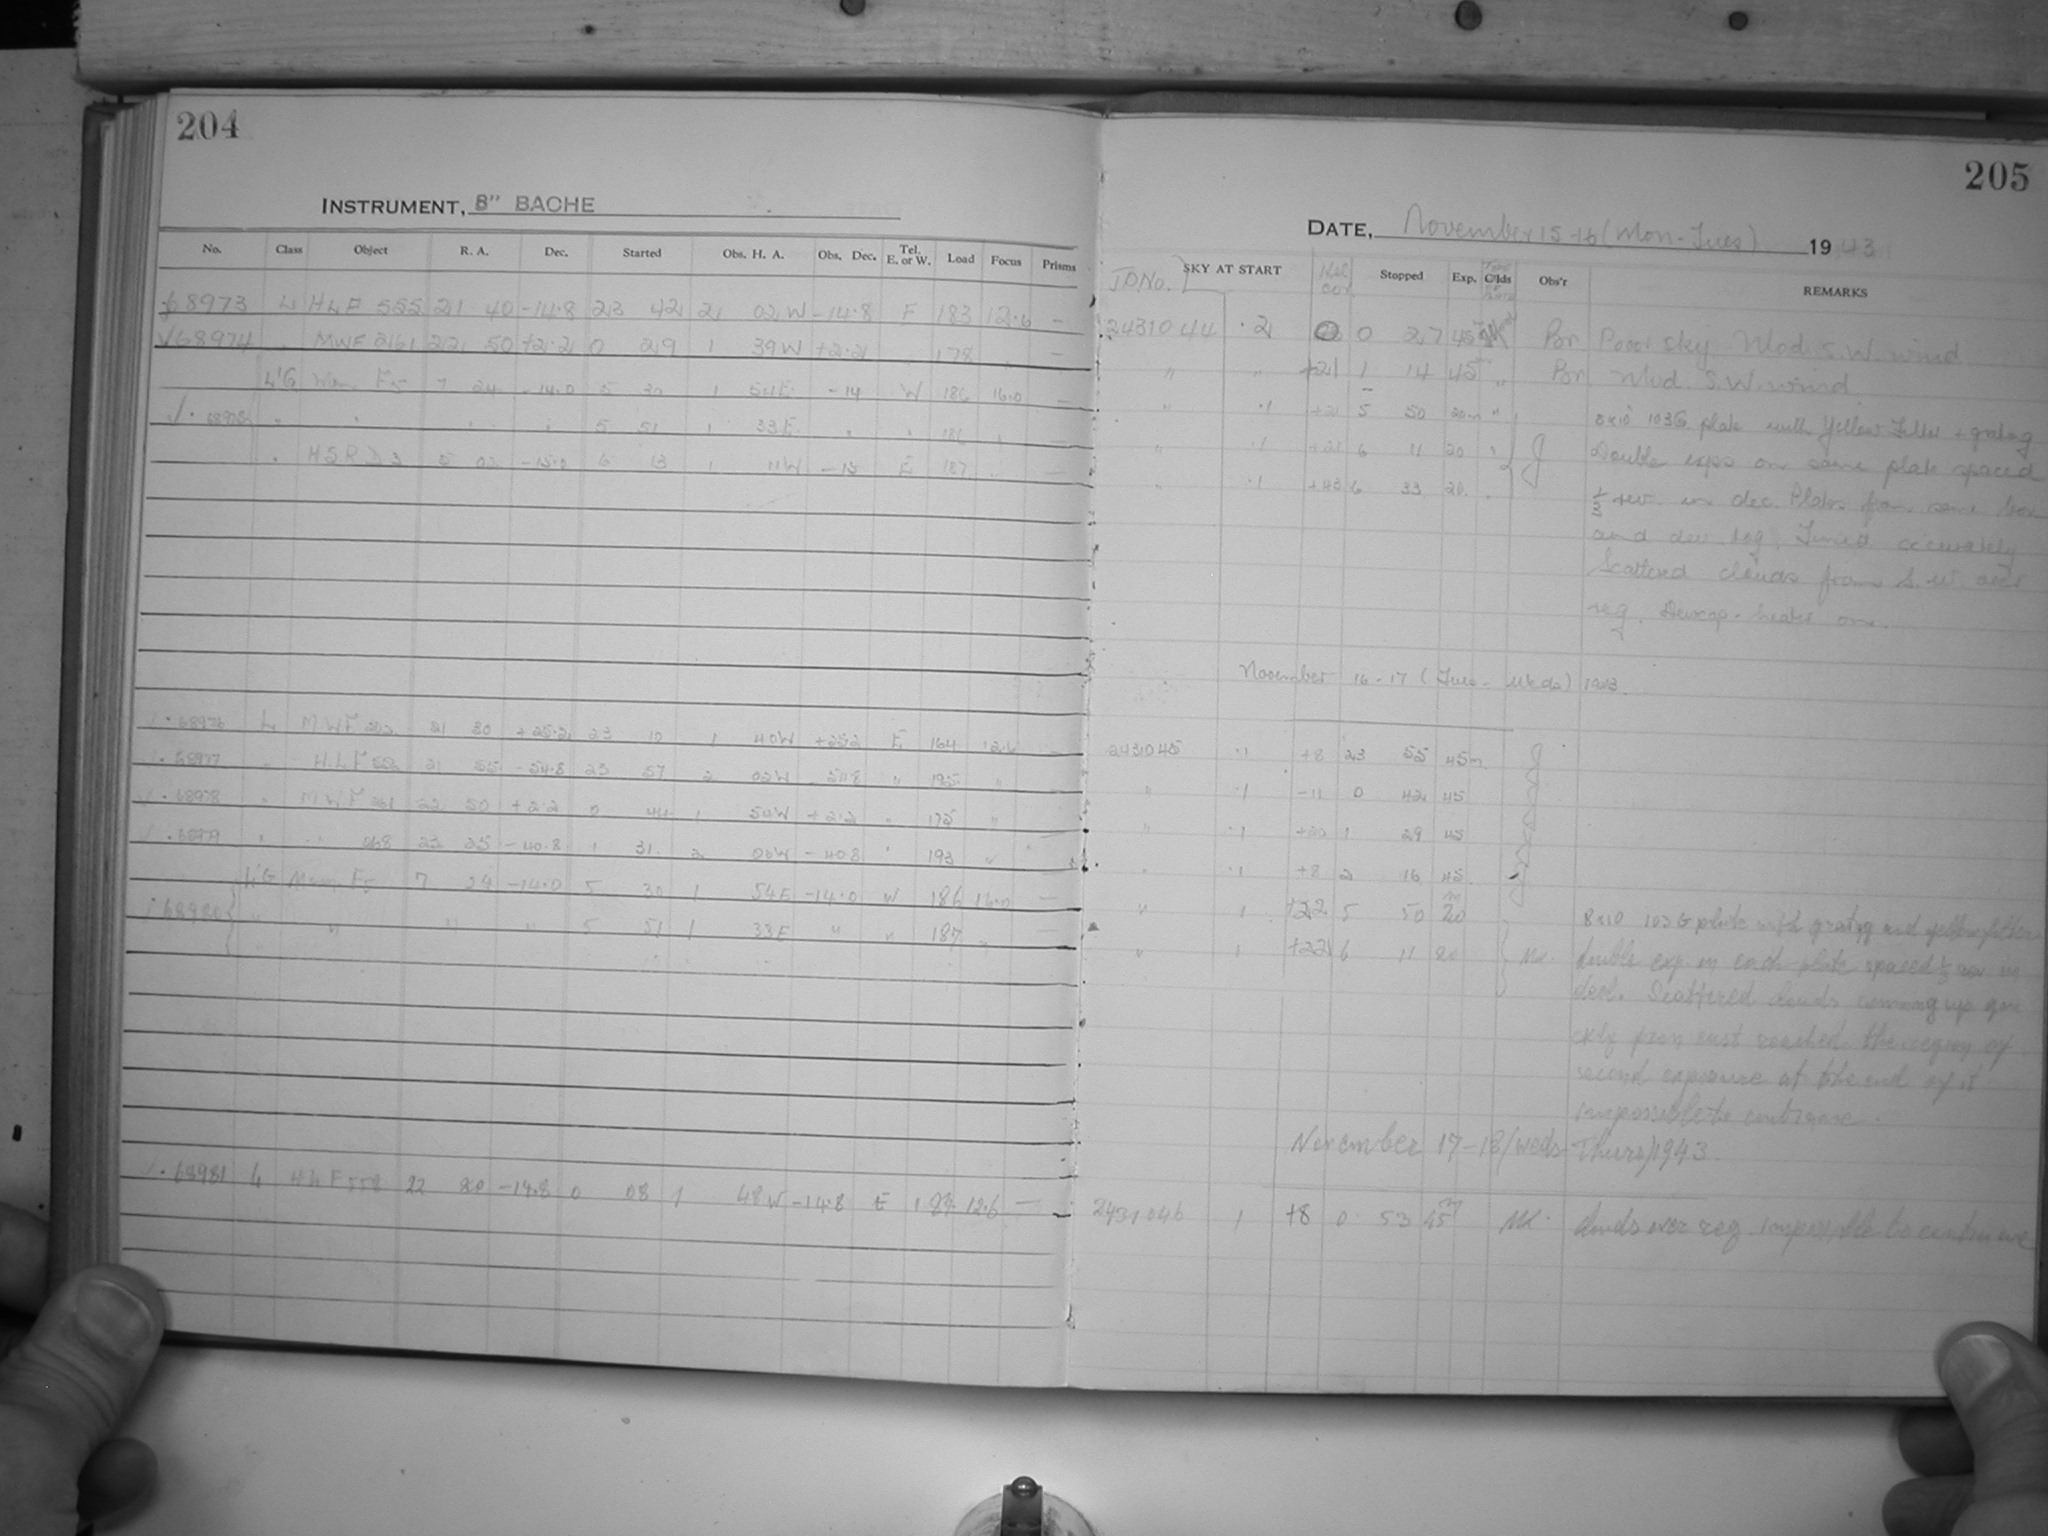 204
INSTRUMENT, 8" BACHE
No. Class Object R. A. Dec. Started Obs. H. A. Obs. Dec. Tel. E. or W. Load Focus Prisms
68973 L HLF 555 21 40 -14.8 23 42 2 02 W -14.8 E 183 12.6 —
√68974 MWF 261 22 50 +2.2 0 29 1 39W +2.2 178
L'G F5 7 24 -14.0 5 30 1 54E -14 W 186 16.0 —
√. 68975 " " " " 5 51 1 33E " " 186 —
HSRD3 5 02 -15.0 6 13 1 11W -15 E 187 —
√.68976 L MWF 21 30 +25.2 23 10 1 40W +25.2 E 164 —
√.68977 " HLF 21 55 -54.8 23 57 2 02W -54.8 " 195 "
√.68978 " MWF 261 22 50 +2.2 0 44 1 54W +2.2 " 175 "
√.68979 " " 068 23 25 -40.8 1 31 2 06W -40.8 " 193 "
L'G F5 7 24 -14.0 5 30 1 54E -14.0 W 186 16.0 —
68980 " " " " 5 51 1 33E " " 187 " —
√.68981 L HLF 558 22 20 -14.8 0 08 1 48W -14.8 E 12.6 —
205
DATE, November 15-16 (Mon-Tues) 1943
JDNo. SKY AT START Stopped Exp. Clds Obs'r REMARKS
2431044 .2 0 27 45 Br Poor sky Mod. S.W. wind
" " +21 1 14 45 " Br Mod. S.W. wind
" .1 +21 5 50 20m " 8x10 103G plate with Yellow Filter + grating
" .1 +21 6 11 20 " J Double exps on same plate spaced
" .1 +43 6 33 20 1/3 rev. in dec. Plates from same box
and dev. tog. Timed accurately
Scattered clouds from S.W. over
reg. Dewcap-heater on.
November 16-17 (Tues-Weds) 1943.
2431045 .1 +8 23 55 45m J
" .1 -11 0 42 45
" .1 +20 1 29 45
" .1 +8 2 16 45
" 1 +22 5 50 20m 8x10 103G plate with grating and yellow filter
" 1 +22 6 11 20 MK. double exp on each plate spaced 1/3 rev in
decl. Scattered clouds coming up qui
ckly from east reached the region of
second exposure at the end of it
impossible to continue.
November 17-18 (Weds-Thurs) 1943.
2431046 1 +8 0 53 45m MK. clouds over reg impossible to continue